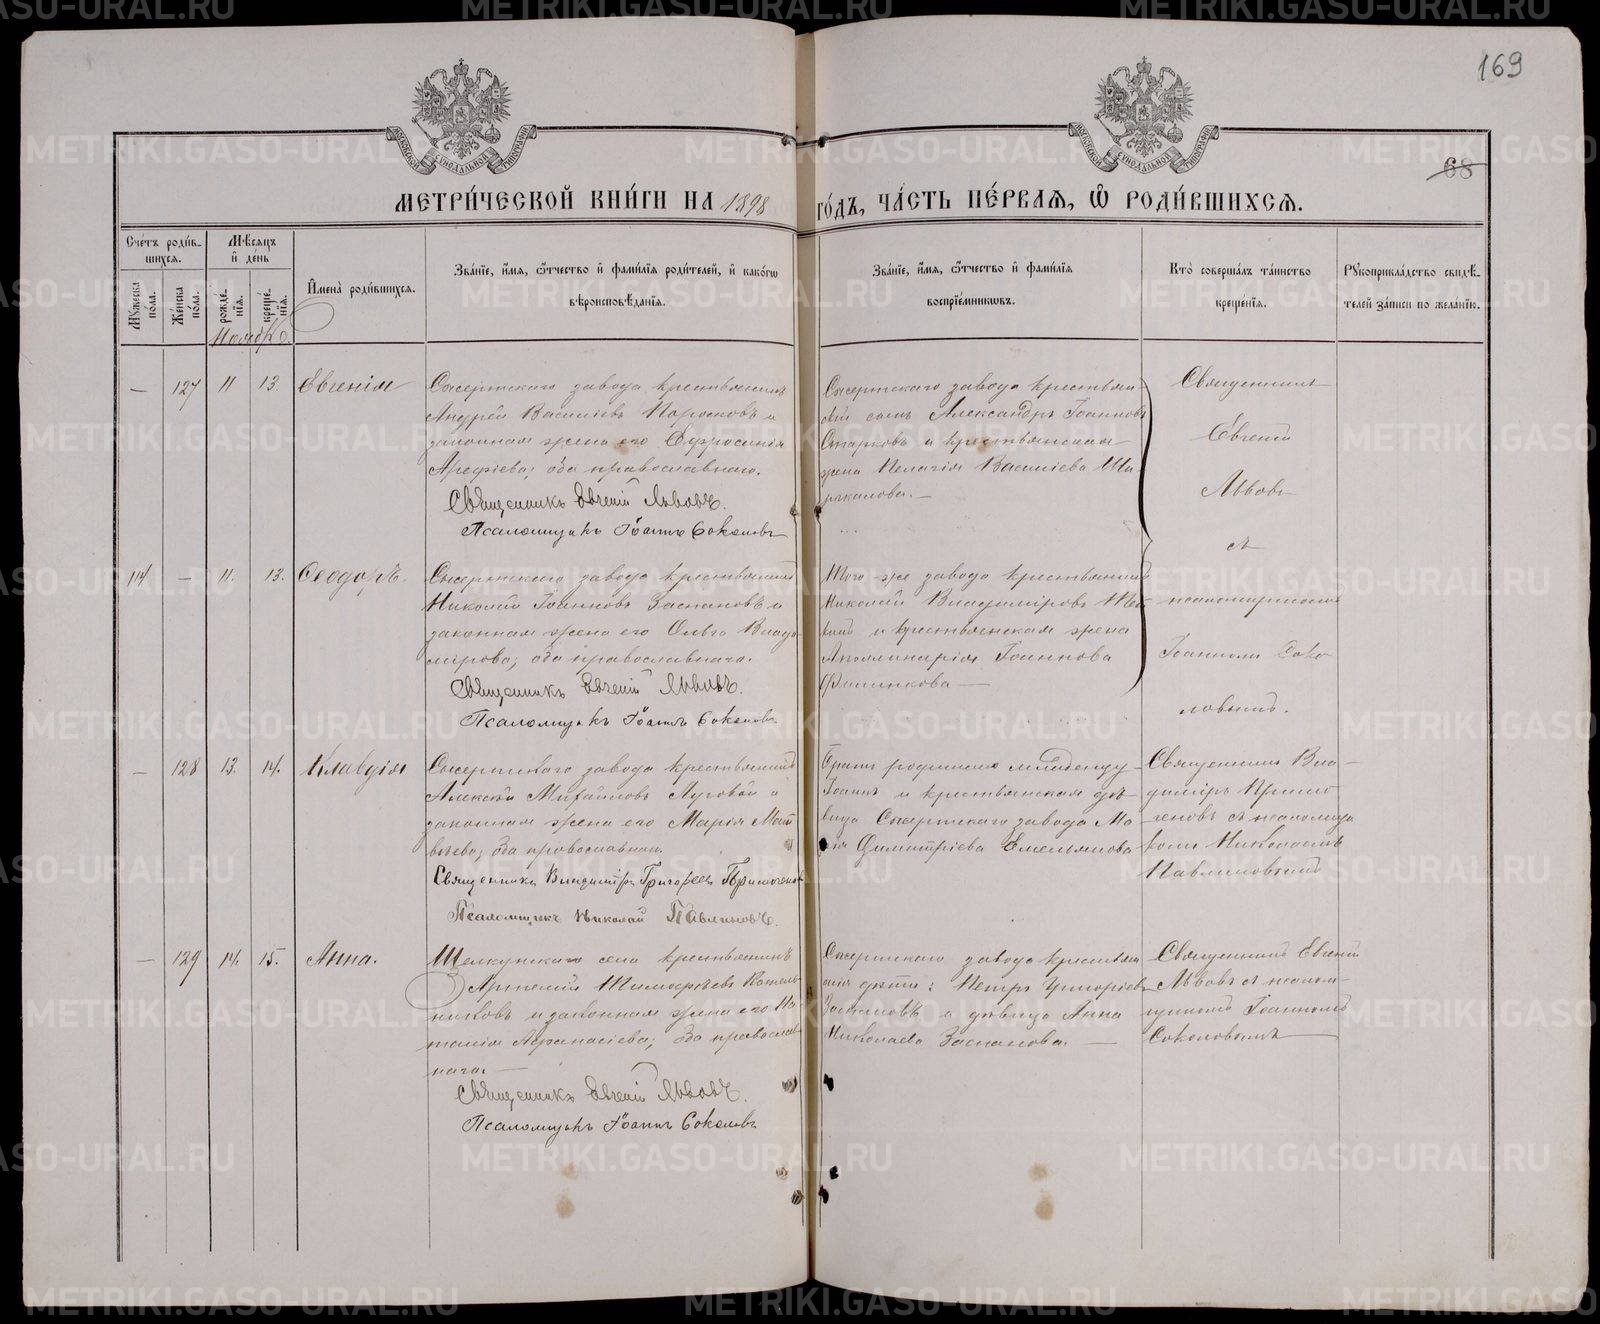 169
68
МОСКОВСКОЙ СѴНОДАЛЬНОЙ ТИПОГРАФІИ
МОСКОВСКОЙ СѴНОДАЛЬНОЙ ТИПОГРАФІИ
МЕТРИ́ЧЕСКОЙ КНИ́ГИ НА 1898 ГО́ДЪ, ЧА́СТЬ ПЕ́РВАЯ, Ѽ РОДИ́ВШИХСЯ.
Сче́тъ роди́в-
шихся.
Мꙋ́жеска по́ла.
Же́нска по́ла.
Мѣ́сяцъ
и҆ де́нь
рожде́-нїя.
креще́-нїя.
И҆мена̀ роди́вшихся.
Зва́нїе, и҆́мя, ѻ҆́тчество и҆ фами́лїя роди́телей, и҆ како́гѡ
вѣроисповѣ́данїя.
Зва́нїе, и҆́мя, ѻ҆́тчество и҆ фами́лїя
воспрїе́мникѡвъ.
Кто̀ соверша́лъ та́инство
креще́нїя.
Рꙋкоприкла́дство свидѣ́-
телей за́писи по жела́нїю.
Ноябрь.
— 127 11 13. Евгенія
Сысертскаго завода крестьянинъ
Андрей Василіевъ Поросковъ и
законная жена его Ефросинія
Арефіева; оба православнаго.
Священникъ Евгеній Львовъ.
Псаломщикъ Іоаннъ Соколовъ
Сысертскаго завода крестьян-
скій сынъ Александръ Іоанновъ
Старковъ и крестьянская
жена Пелагія Василіева Ши-
рыкалова. —
Священникъ
Евгеній
Львовъ
съ
псаломщикомъ
Іоанномъ Соко
ловымъ.
114 — 11. 13. Ѳеодоръ.
Сысертскаго завода крестьянинъ
Николай Іоанновъ Заспановъ и
законная жена его Ольга Влади-
мірова; оба православнаго.
Священникъ Евгеній Львовъ.
Псаломщикъ Іоаннъ Соколовъ
Того-же завода крестьянинъ
Николай Владиміровъ
и крестьянская жена
Аполлинарія Іоаннова
— 128 13. 14. Клавдія
Сысертскаго завода крестьянинъ
Алексѣй Михаиловъ Луговой и
законная жена его Марія Мат
вѣева; оба православнаго.
Священникъ Владиміръ Григорьевъ
Псаломщикъ Николай Павлиновъ.
Братъ родившему младенцу
Іоаннъ и крестьянская дѣ-
вица Сысертскаго завода Ма
рія Димитріева Емельянова
Священникъ Вла-
диміръ
съ псаломщи
комъ Николаемъ
— 129 14. 15. Анна.
Щелкунскаго села крестьянинъ
Артемій Тимоѳеевъ Котель
никовъ и законная жена его На
талія Аѳанасіева; оба православ
наго. —
Священникъ Евгеній Львовъ.
Псаломщикъ Іоаннъ Соколовъ
Сысертскаго завода крестьян
скія дѣти: Петръ Григоріевъ
Заспановъ и дѣвица Анна
Николаева Заспанова. —
Священникъ Евгеній
Львовъ съ псалом-
щикомъ Іоанномъ
Соколовымъ
METRIKI.GASO-URAL.RU